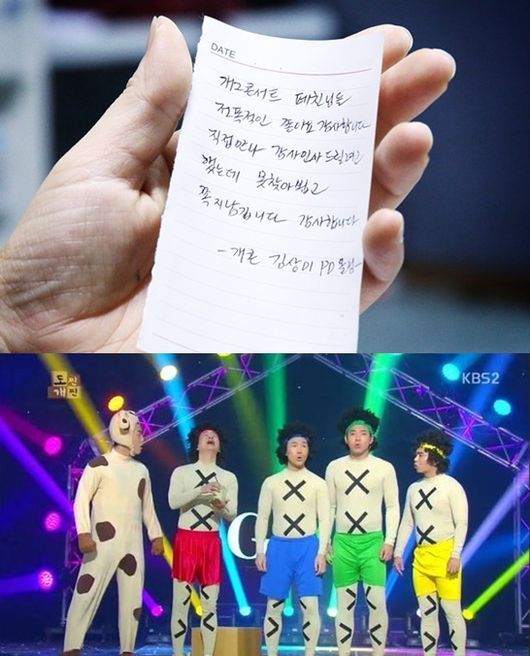 DATE
개그콘서트 페친님들
전폭적인 좋아요 감사합니다
직접만나 감사인사 드릴려고
했는데 못찾아뵙고
쪽지남깁니다 감사합니다
- 개콘 김상미 PD 올림-
도찐
개찐
KBS2
G